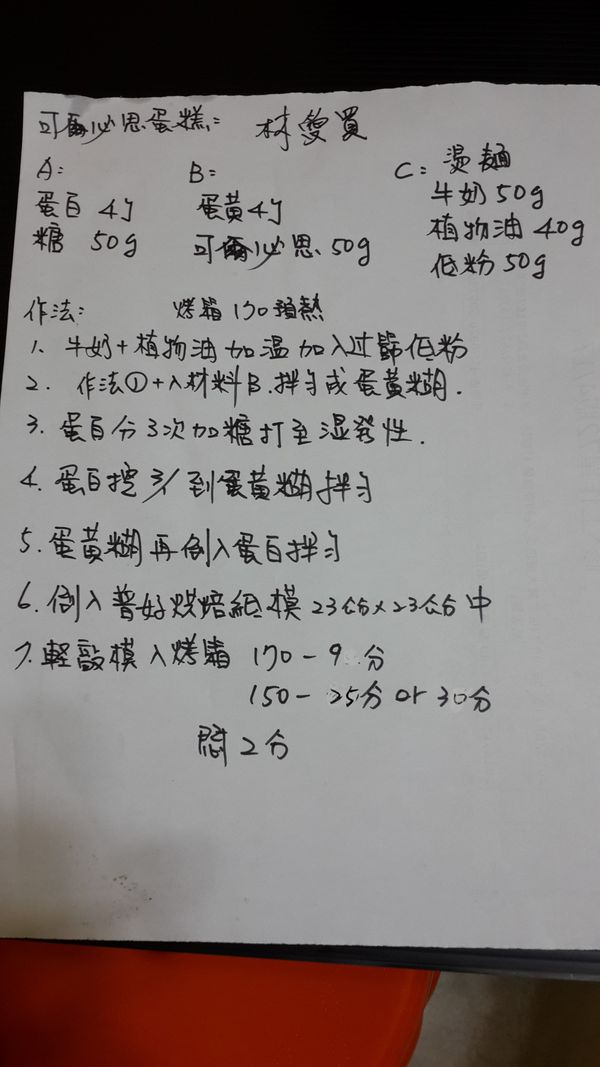 可爾必思蛋糕: 林雙買
A: B: C: 燙麵
蛋白 4個 蛋黃 4個 牛奶 50g
糖 50g 可爾必思 50g 植物油 40g
低粉 50g
作法: 烤箱 170 預熱
1. 牛奶+植物油加温加入过篩低粉
2. 作法①+入材料B.拌勻成蛋黃糊.
3. 蛋白分3次加糖打至湿発性.
4. 蛋白挖 3/1 到蛋黃糊拌勻
5. 蛋黃糊再倒入蛋白拌勻
6. 倒入普好烘焙紙模 23公分×23公分中
7. 軽敲模入烤箱 170-9分
150-25分 or 30分
悶 2分